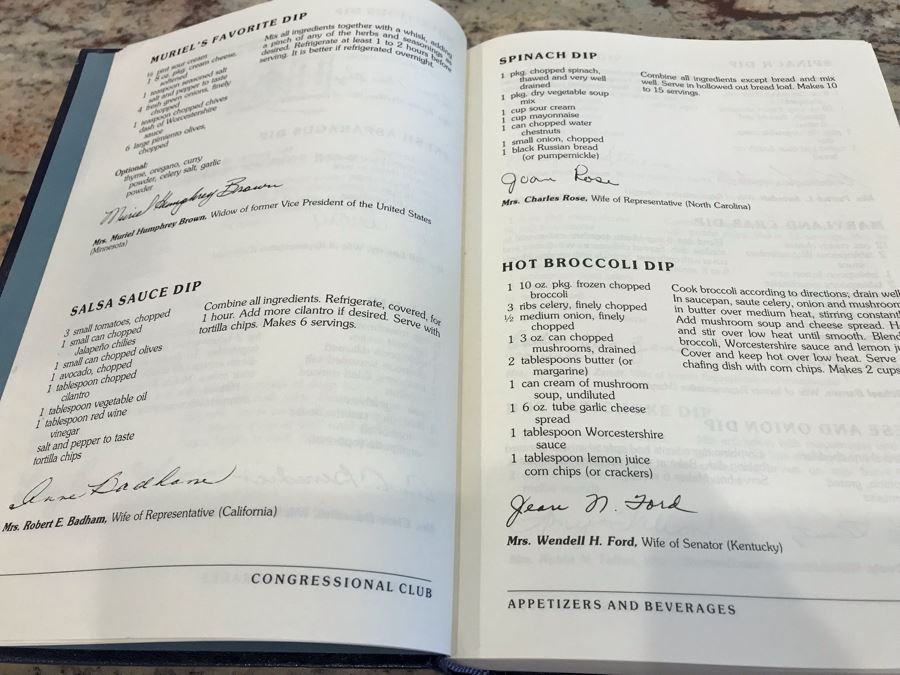 MURIEL'S FAVORITE DIP
½ pint sour cream
1 8 oz. pkg. cream cheese,
softened
1 teaspoon seasoned salt
salt and pepper to taste
4 fresh green onions, finely
chopped
1 teaspoon chopped chives
dash of Worcestershire
sauce
6 large pimiento olives,
chopped
Optional:
thyme, oregano, curry
powder, celery salt, garlic
powder
Mix all ingredients together with a whisk, adding
a pinch of any of the herbs and seasonings as
desired. Refrigerate at least 1 to 2 hours before
serving. It is better if refrigerated overnight.
Muriel Humphrey Brown
Mrs. Muriel Humphrey Brown, Widow of former Vice President of the United States
(Minnesota)
SALSA SAUCE DIP
3 small tomatoes, chopped
1 small can chopped
Jalapeño chilies
1 small can chopped olives
1 avocado, chopped
1 tablespoon chopped
cilantro
1 tablespoon vegetable oil
1 tablespoon red wine
vinegar
salt and pepper to taste
tortilla chips
Combine all ingredients. Refrigerate, covered, for
1 hour. Add more cilantro if desired. Serve with
tortilla chips. Makes 6 servings.
Anne Badham
Mrs. Robert E. Badham, Wife of Representative (California)
CONGRESSIONAL CLUB
SPINACH DIP
1 pkg. chopped spinach,
thawed and very well
drained
1 pkg. dry vegetable soup
mix
1 cup sour cream
1 cup mayonnaise
1 can chopped water
chestnuts
1 small onion, chopped
1 black Russian bread
(or pumpernickle)
Combine all ingredients except bread and mix
well. Serve in hollowed out bread loaf. Makes 10
to 15 servings.
Joan Rose
Mrs. Charles Rose, Wife of Representative (North Carolina)
HOT BROCCOLI DIP
1 10 oz. pkg. frozen chopped
broccoli
3 ribs celery, finely chopped
½ medium onion, finely
chopped
1 3 oz. can chopped
mushrooms, drained
2 tablespoons butter (or
margarine)
1 can cream of mushroom
soup, undiluted
1 6 oz. tube garlic cheese
spread
1 tablespoon Worcestershire
sauce
1 tablespoon lemon juice
corn chips (or crackers)
Cook broccoli according to directions; drain well
In saucepan, saute celery, onion and mushroom
in butter over medium heat, stirring constant
Add mushroom soup and cheese spread. H
and stir over low heat until smooth. Blend
broccoli, Worcestershire sauce and lemon ju
Cover and keep hot over low heat. Serve
chafing dish with corn chips. Makes 2 cups
Jean N. Ford
Mrs. Wendell H. Ford, Wife of Senator (Kentucky)
APPETIZERS AND BEVERAGES